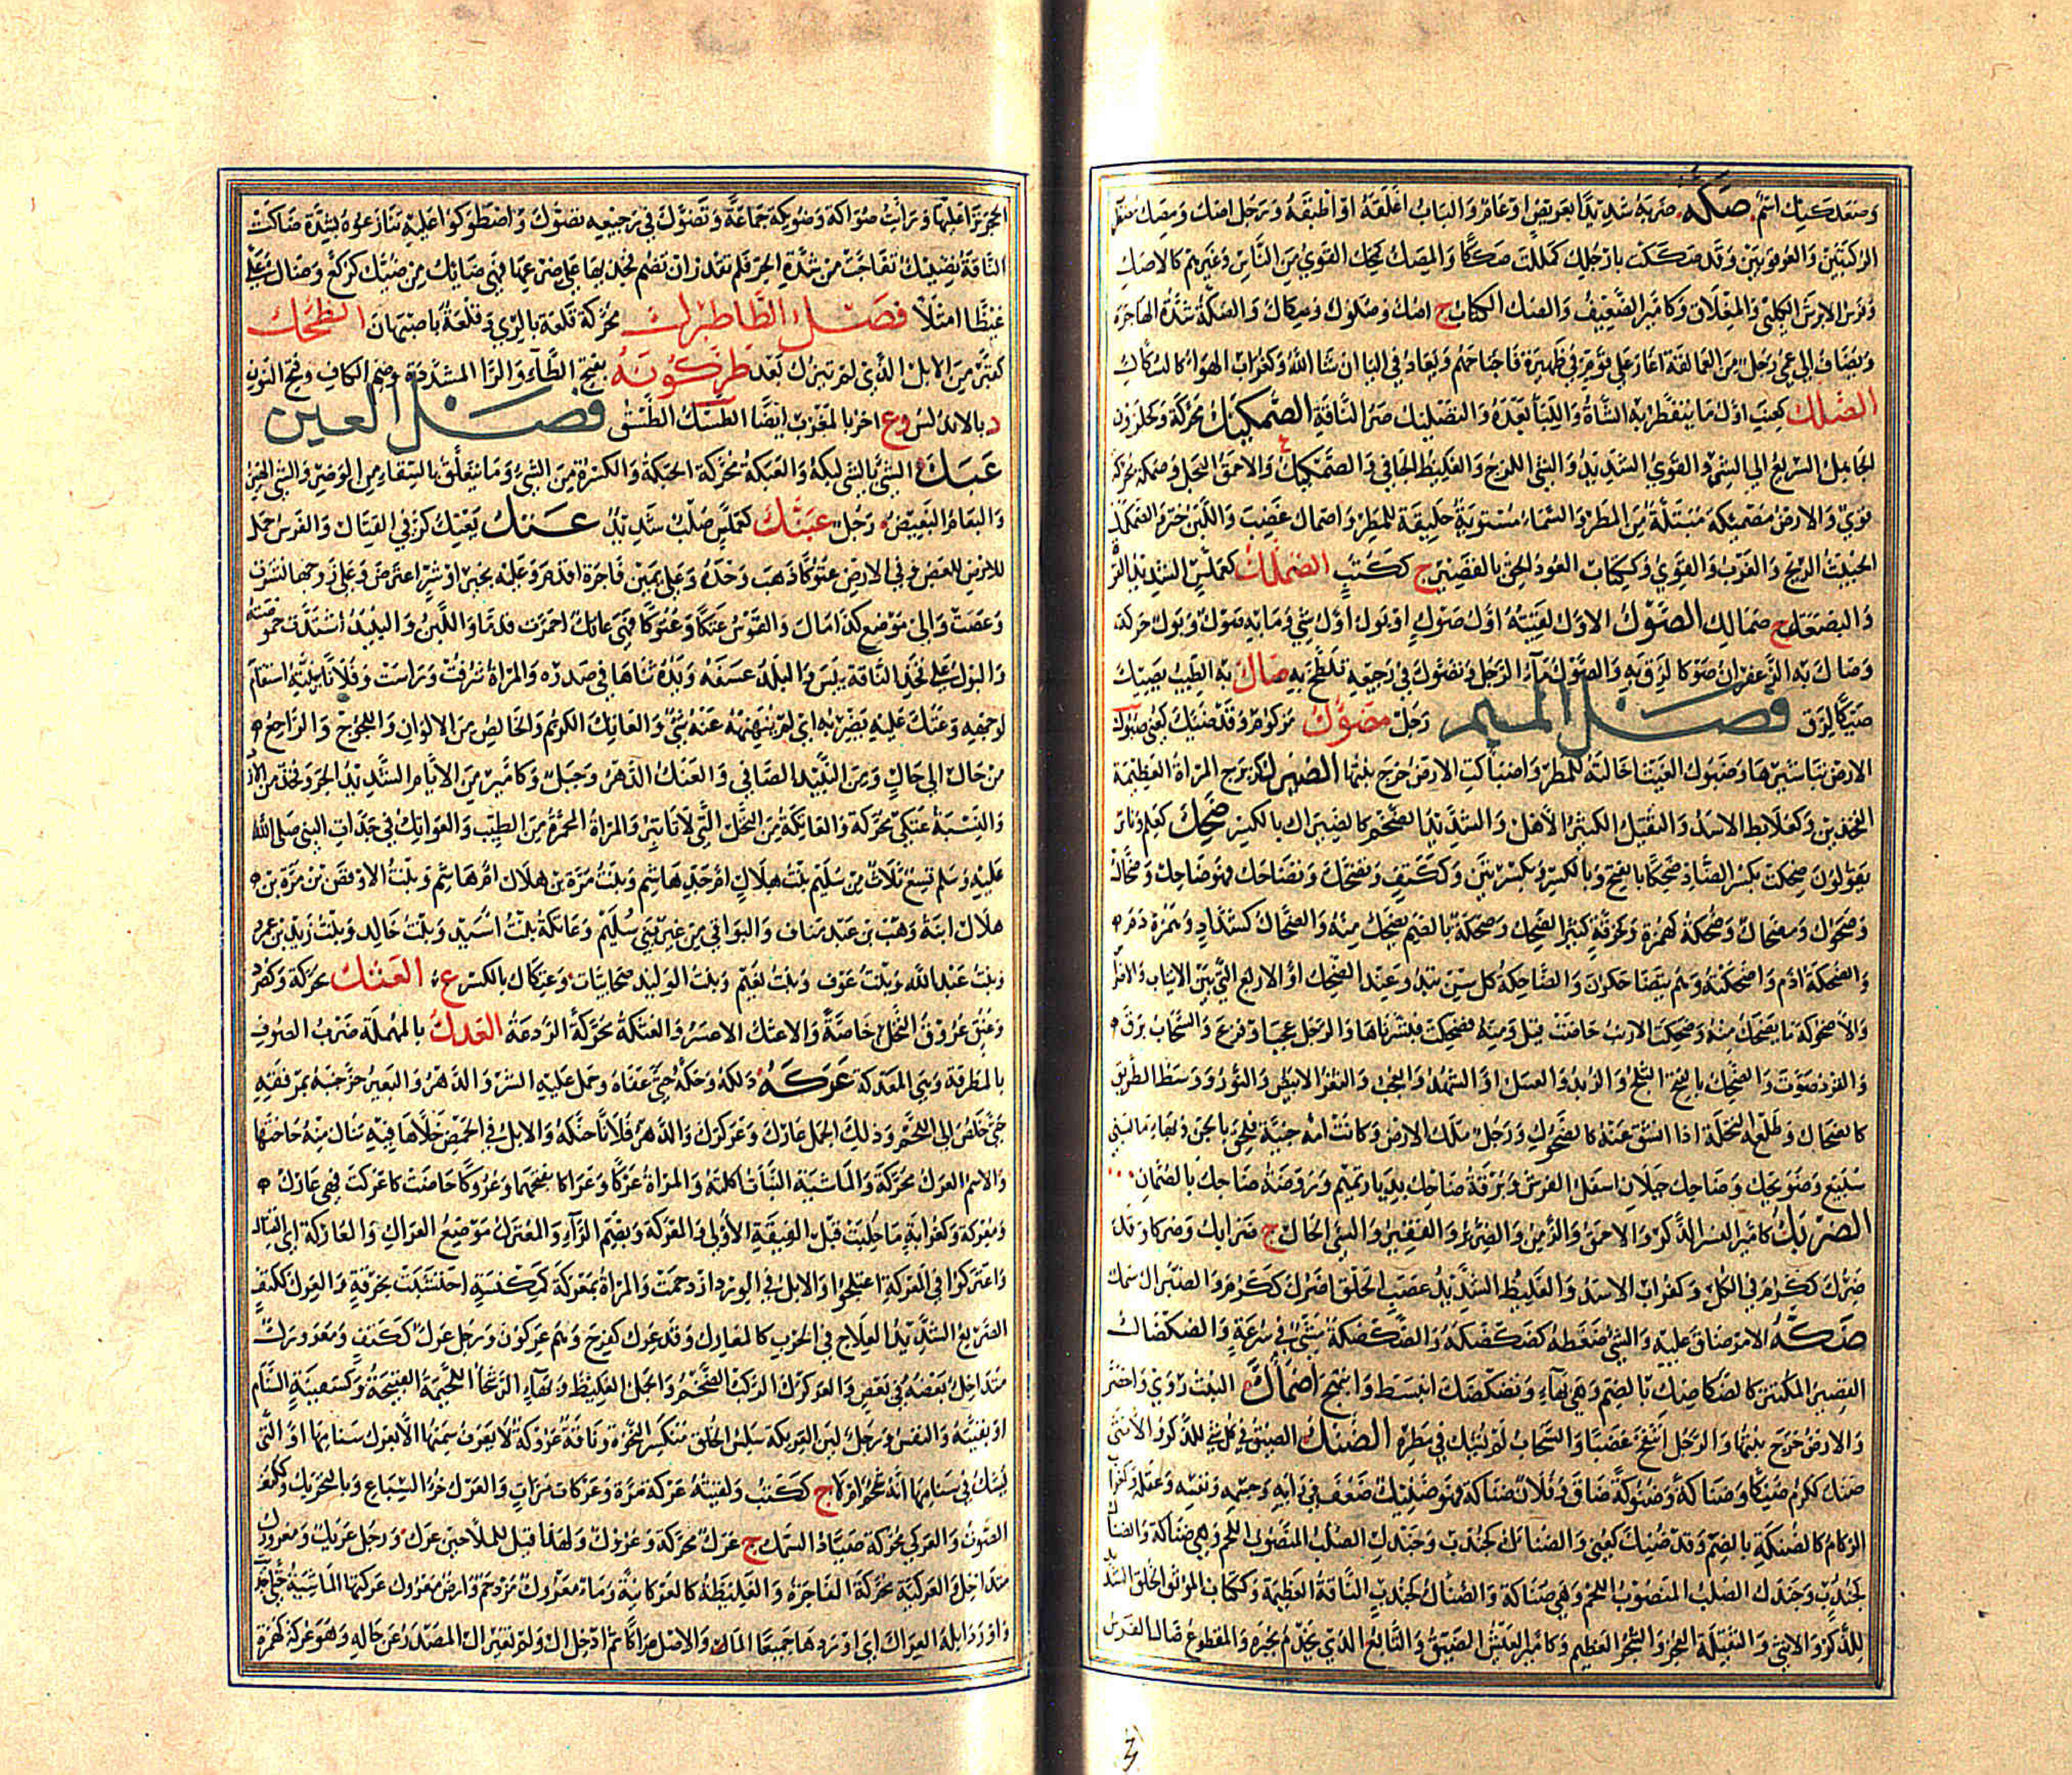 وصعلكيك اسم صَكَّه ضربه شديدا بعريض او عام والباب اغلقه او اطبقه ورجل اصك ومصك مضطرب
الركبتين والعرقوبين وقد صككت يا رجل كمللت صككا والمصك كمجن القوي من الناس وغيرهم كالاصك
وفرس الابرش الكلبي والمغلاق وكامير الضعيف والصك الكتاب ج اصك وصكوك وصكاك والصكة شدة الهاجرة
وتضاف الى عمي رجل من العمالقة اغار على قوم في ظهيرة فاجتاحهم ويعاد في اليا ان شا الله وكغراب الهوا كالسكاك
الصلك كعنب اول ما ينفطر به الشاة واللبأ بعده والتصليك صر الناقة الصمكيك محركة وكحلزون
الجاهل السريع الى الشر والقوي الشديد والشي اللزج والغليظ الجافي والصمكيك والاحمق العجل وصمكة محركة
قوي والارض مصمئكة مبتلة من المطر والسماء مستوية خليقة للمطر واصماك غضب واللبن خثر
الخبيث الريح والعزب والقوي وككتاب العود الحق بالقضيرج ككتب الصملك كعملس الشديد القوة
والبضعة ج صمالك الصوك الاول لقيته اول صوك او بوك اول شي وما به صوك وبوك حركة
وصاك به الزعفران صوكا لزق به والصوك ماء الرجل وتصوك في رجيعه تلطخ به صاك به الطيب يصيك
صيكا لزق فصل الميم رجل مضؤوك مزكوم وقد ضئك كعني ضبوك
الارض تباشيرها وضبوك الغيث اخالته للمطر واضبأكت الارض خرج نبتها الضبرك كزبرج المراة العظيمة
الفخذين وكعلابط الاسد والثقيل الكثير الاهل والشديد الضخم كالضبراك بالكسر ضحك كعلم وناس
يقولون ضحكت بكسر الضاد ضحكا بالفتح وبالكسر وبكسرتين وككتف وتضحك وتضاحك فهو ضاحك وضحاك
وضحوك ومضحاك وضحكة كهمزة وحزقة كثير الضحك وضحكة بالضم يضحك منه والضحاك كشداد وهمزة ذم
والضحكة اذم واضحكته وهم يتضاحكون والضاحكة كل سن تبدو عند الضحك او الاربع التي بين الانياب والاضراس
والاضحوكة ما يضحك منه وضحكت الارنب حاضت قيل ومنه فضحكت فبشرناها والرجل عجب او فزع والسحاب برق
والقرد صوت والضحك بالفتح الثلج والزبد والعسل او الشهد والعجب والثغر الابيض والنور ووسط الطريق
كالضحاك وطلع النخلة اذا انشق عنه كالضحوك ورجل ملك الارض وكانت امه جنية فلحق بالجن وبهاء ما لبني
سبيع وضويحك وضاحك جبلان اسفل الفرش وبرقة ضاحك بديار تميم وروضة ضاحك بالصمان
الضريك كامير النسر الذكر والاحمق والزمن والضرير والفقير والسيئ الحال ج ضرائك وضركا وقد
ضرك ككرم في الكل وكغراب الاسد والغليظ الشديد عصب الخلق اضرك ككرم والضبراك سمك
ضَكَّه الامر ضاق عليه والشي ضغطه كضكضكه والضكضكة مشي في سرعة والضكضاك
القصير المكتنز كالضكاضك بالضم وهي بهاء وتضكضك انبسط وابتهج اضمأك النبت روي واخضر
والارض خرج نبتها والرجل انتفخ غضبا والسحاب لم يشك في مطره الضنك الضيق في كل شي للذكر والانثى
ضنك ككرم ضنكا وضناكة وضنوكة ضاق وفلان ضناكة فهو ضنيك ضعف في رايه وجسمه ونفسه وعقله وكغراب
الزكام كالضنكة بالضم وقد ضنك كعني والضنائك كجندب وجندل الصلب المعصوب اللحم وهي ضناكة والضناك
كجندب وجندل الصلب المعصوب اللحم وهي ضناكة والضناك كجندب الناقة العظيمة وككتاب الموثق الخلق الشديد
للذكر والانثى والثقيلة العجز والشجر العظيم وكامير العيش الضيق والتابع الذي يخدم بخبزه والمقطوع ضاك الفرس
الحجر نزا عليها ورايت ضواكة وضويكة جماعة وتضوك في رجيعه تصوك واضطوكوا عليه تنازعوه بشدة ضاكت
الناقة تضيك تفاجت من شدة الحر فلم تقدر ان تضم فخذيها على ضرعها فهي ضائك من ضيك كركع وضاك علي
غيظا امتلأ فصل الطا طبرك محركة قلعة بالري وقلعة باصبهان الطحك
كعتر من الابل التي لم تبرك بعد طركونة بفتح الطاء والرا المشددة وضم الكاف وفتح النون
د بالاندلس وع اخر بالمغرب ايضا الطسك الطسق فصل العين
عبك الشي بالشي لبكه والعبكة محركة الحبكة والكسرة من الشي وما يتعلق بالسقاء من الوضر والشي الهين
والبعام البغيض رجل عبنك كعملس صلب شديد عتك يعتك كر في القتال والفرس حمل
للعض وفي الارض عتوكا ذهب وحده وعلى يمين فاجرة اقدم وعليه بخير او شر اعترض وعلى زوجها نشزت
وعصت والى موضع كذا مال والقوس عتكا وعتوكا فهي عاتك احمرت قدما واللبن والنبيذ اشتدت حموضته
والبول على فخذ الناقة يبس والبلد عسفه ويده ثناها في صدره والمراة شرفت ورأست وفلانا بنيته استقام
لوجهه وعتك عليه يضربه اي لم ينهنهه عنه شي والعاتك الكريم والخالص من الالوان واللجوج والراجع
من حال الى حال ومن النبيذ الصافي والعتك الدهر وجبل وكامير من الايام الشديد الحر وفخذ من الازد
والنسبة عتكي محركة والعاتكة من النخل التي لا تأتبر والمراة المحمرة من الطيب والعواتك في جدات النبي صلى الله
عليه وسلم تسع ثلاث من سليم بنت هلال ام جد هاشم وبنت مرة بن هلال ام هاشم وبنت الاوقص بن مرة بن
هلال ام وهب بن عبد مناف والبواقي من غير بني سليم وعاتكة بنت اسيد وبنت خالد وبنت زيد بن عمرو
وبنت عبد الله وبنت عوف وبنت نعيم وبنت الوليد صحابيات وعتكان بالكسر ع العثك محركة وكصرد
وعنق عروق النخل خاصة والاعثك الاعسر والعثكة محركة الردغة العدك بالمهملة ضرب الصوف
بالمطرقة وهي المعدكة عركه دلكه وحكه حتى عفاه وحمل عليه الشر والدهر والبعير حز جنبه بمرفقه
حتى خلص الى اللحم وذلك الجمل عارك وعركرك والدهر فلانا حنكه والابل في الحمض خلاها فيه تنال منه حاجتها
والاسم العرك محركة والماشية النبات اكلته والمراة عركا وعراكا بفتحهما وعروكا حاضت كاعركت فهي عارك
ومعركة وكغرابة ما حلبت قبل الفيقة الاولى والعركة وبضم الراء والمعترك موضع العراك والمعاركة اي القتال
واعتركوا في المعركة اعتلجوا والابل في الورد ازدحمت والمراة بمعركة كمكنسة احتشت بخرقة والعرك ككتف
الصريع الشديد العلاج في الحرب كالمعارك وقد عرك كفرح وهم عركون ورمل عرك ككتف ومعرورك
متداخل بعضه في بعض والعركرك الركب الضخم والجمل الغليظ وبهاء الرسحا اللحيمة القبيحة وكسفينة السنام
او بقيته والنفس ورجل لين العريكة سلس الخلق منكسر النخوة وناقة عروك لا يعرف سمنها الا بعرك سنامها او التي
يشك في سنامها انه شحم ام لا ج ككتب ولقيته عركة مرة وعركات مرات والعرك خرء السباع وبالتحريك وككتف
الصوت والعركي محركة صياد السمك ج عرك محركة وعروك ولهذا قيل للملاحين عرك ورجل عريك ومعرورك
متداخل والعركية محركة الفاجرة والغليظة كالعركانية وماء معروك مزدحم وارض معروكة عركتها الماشية حتى اجدبت
واورد ابله العراك اي اوردها جميعا الماء والاصل عراكا ثم ادخل ال ولم تغير ال المصدر عن حاله وهو عركة كهمزة